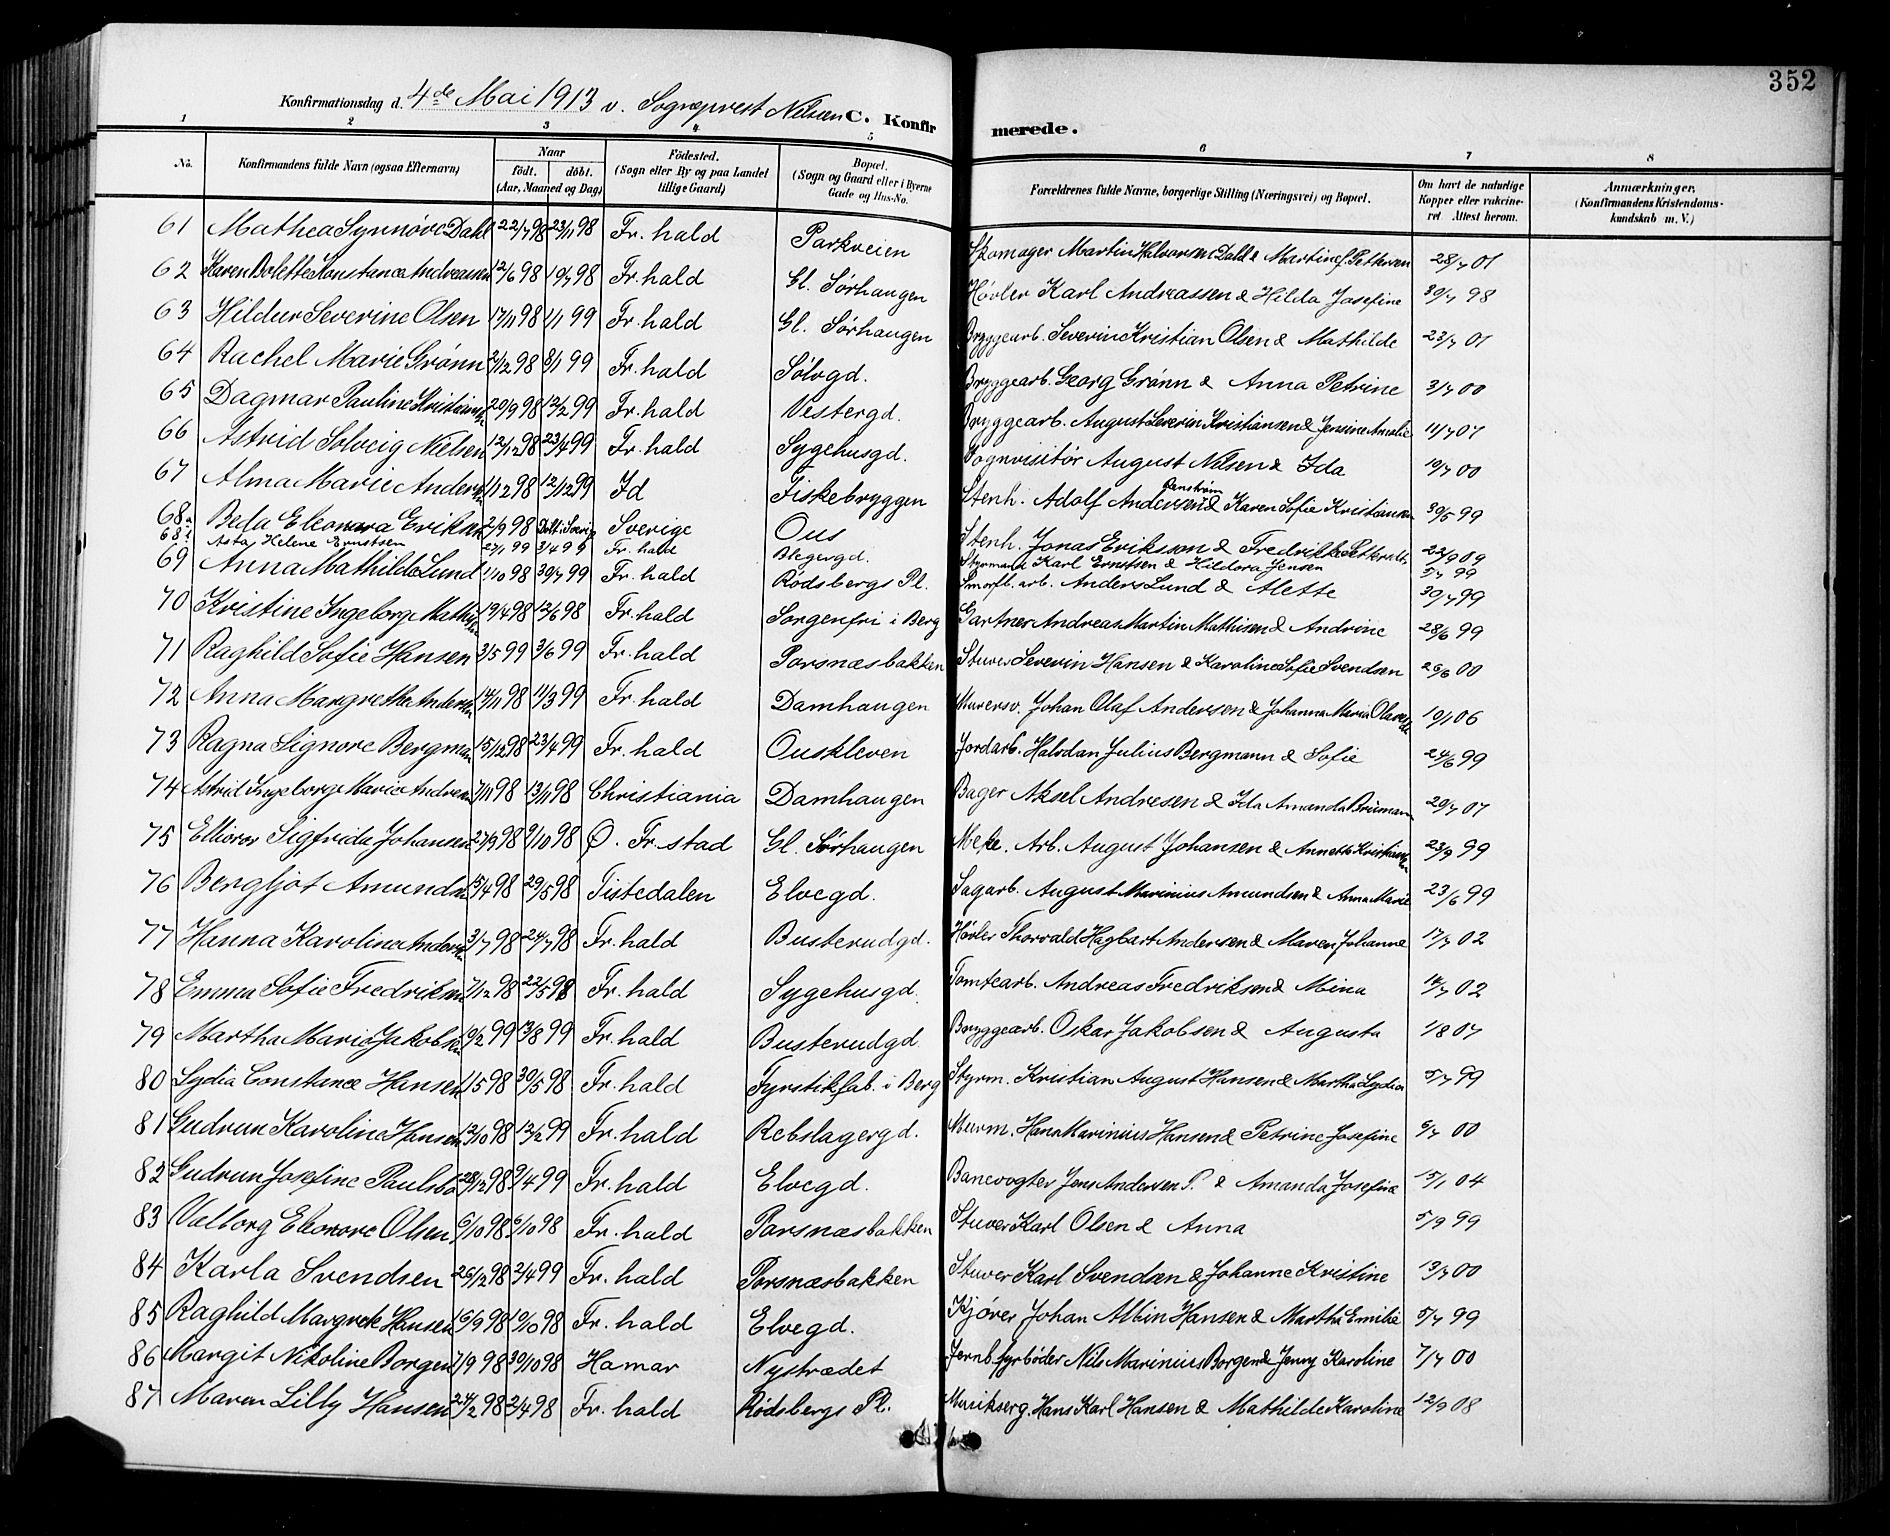 352
Konfirmationsdag d. 4de Mai 1913 v. Sogneprest Nilsen C. Konfirmerede.
1 2 3 4 5 6 7 8
No. Konfirmandens fulde Navn (ogsaa Efternavn) Naar født. døbt. (Aar, Maaned og Dag) Födested. (Sogn eller By og paa Landet tillige Gaard) Bopæl. (Sogn og Gaard eller i Byerne Gade og Hus-No. Forældrenes fulde Navne, borgerlige Stilling (Næringsvei) og Bopæl. Om havt de naturlige Kopper eller vakcineret Attest herom. Anmærkninger. (Konfirmandens Kristendomskundskab m. V.)
61 Mathea Synnøve Dahl 22/7 98 23/11 98 Fr. hald Parkveien Skomager Martin Halvorsen Dahl & Martine f. Pettersen 28/7 01
62 Karen Bolette Konstance Andreassen 12/6 98 10/7 98 Fr. hald Gl. Sørhaugen Høvler Karl Andreassen & Hilda Josefine 30/7 98
63 Hildur Severine Olsen 17/11 98 1/1 99 Fr. hald Gl. Sørhaugen Bryggearb. Severin Kristian Olsen & Mathilde 23/7 01
64 Rachel Marie Grønn 2/12 98 8/1 99 Fr. hald Sølvgd. Bryggearb. Georg Grønn & Anna Petrine 3/7 00
65 Dagmar Pauline Kristiansen 20/9 98 12/2 99 Fr. hald Vestergd. Bryggearb. August Severin Kristiansen & Jensine Amalie 11/7 07
66 Astrid Solveig Nielsen 12/12 98 23/4 99 Fr. hald Sygehusgd. Vognvisitør August Nilsen & Ida 10/7 00
67 Alma Marie Andersen 1/12 98 12/12 99 Id Fiskebryggen Stenh. Adolf Andersen Renstrøm & Karen Sofie Kristiansen 30/5 99
68a Beda Eleonora Eriksen 2/9 98 Døbt i Sverige Sverige Ous Stenh. Jonas Eriksson & Fredrikke 23/9 09
68b Asta Helene Ernstsen 27/1 99 3/4 99 Fr. hald Blegergd. Styrmand Karl Ernstsen & Hildora Jensen 5/7 99
69 Anna Mathilde Lund 1/10 98 30/7 99 Fr. hald Rødsbergs Pl. Smørfb. arb. Anders Lund & Alette 30/7 99
70 Kristine Ingeborg Mathisen 13/4 98 12/6 98 Fr. hald Sorgenfri i Berg Gartner Andreas Martin Mathisen & Andrine 28/6 99
71 Raghild Sofie Hansen 3/5 99 3/6 99 Fr. hald Porsnæsbakken Stuver Severin Hansen & Karoline Sofie Svendsen 26/6 00
72 Anna Margrethe Andersen 14/11 98 11/3 99 Fr. hald Damhaugen Murersv. Johan Olaf Andersen & Johanna Maria 10/1 06
73 Ragna Signore Bergman 15/12 98 23/4 99 Fr. hald Ouskleven Jordarb. Halvdan Julius Bergmann & Sofie 24/6 99
74 Astrid Ingeborg Marie Andresen 7/11 98 13/11 98 Christiania Damhaugen Bager Aksel Andresen & Ida Amanda Bruman 29/7 07
75 Ellioror Sigfrida Johansen 27/9 98 9/10 98 Ø. Fr. stad Gl. Sørhaugen Meke. Arb. August Johansen & Annette Kristiansen 23/9 99
76 Bergljot Amundsen 15/4 98 29/5 98 Tistedalen Elvegd. Sagarb. August Marinius Amundsen & Anna Marie 23/6 99
77 Hanna Karolina Andersen 3/7 98 24/7 98 Fr. hald Busterudgd. Høvler Thorvald Hagbart Andersen & Maren Johanne 17/7 02
78 Emma Sofie Fredriksen 7/12 98 22/5 98 Fr. hald Sygehusgd. Tomtearb. Andreas Fredriksen & Mina 14/7 02
79 Martha Maria Jakobsen 10/2 99 13/8 99 Fr. hald Busterudgd. Bryggearb. Oskar Jakobsen & Augusta 1/8 07
80 Lydia Constance Hansen 1/5 98 30/5 98 Fr. hald Fyrstikfab. i Berg Styrm. Kristian August Hansen & Martha Lydia 5/7 99
81 Gudrun Karoline Hansen 12/10 98 12/2 99 Fr. hald Rebslagergd. Murm. Hans Marinius Hansen & Petrine Josefine 6/7 00
82 Gudrun Josefine Paulsbo 28/12 98 9/4 99 Fr. hald Elvegd. Banevogter Jens Andersen P. & Amanda Josefine 15/1 04
83 Valborg Eleonore Olsen 6/10 98 6/10 98 Fr. hald Porsnæsbakken Stuver Karl Olsen & Anna 5/9 99
84 Karla Svendsen 26/12 98 2/4 99 Fr. hald Porsnæsbakken Stuver Karl Svendsen & Johanne Kristine 13/7 00
85 Raghild Margrete Hansen 16/9 98 10/10 98 Fr. hald Elvegd. Kjører Johan Albin Hansen & Martha Emilie 5/7 99
86 Margit Nikoline Borgen 7/9 98 30/10 98 Hamar Nystrædet Jernb. fyrbøder Nils Marinius Borgen & Jenny Karoline 7/7 00
87 Maren Lilly Hansen 24/2 98 2/4 98 Fr. hald Rødsbergs Pl. Musikserg. Hans Karl Hansen & Mathilde Karoline 12/9 08